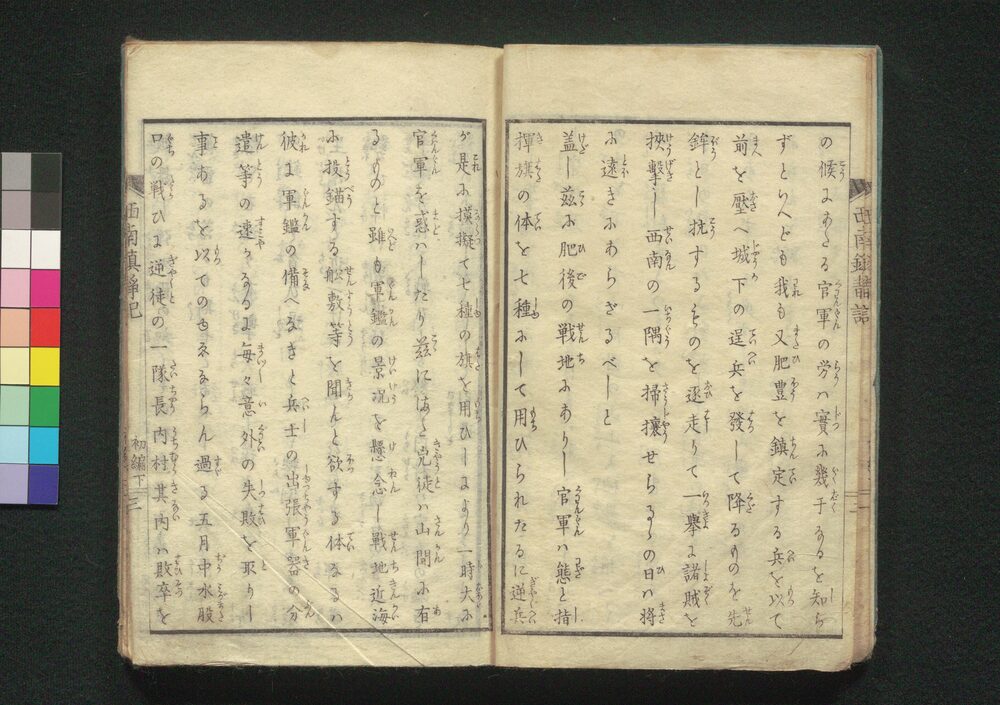 の候にあたる官軍の労ハ實に幾干なるを知ら
ずといへども我も又肥豊を鎮定する兵を以て
前を壓へ城下の逞兵を發して降るものを先
鉾とし抗するものを逐走りて一擧に諸賊を
挾撃し西南の一隅を掃攘せらるゝの日ハ将
に遠きにあらざるべしと
盖し茲に肥後の戦地にありし官軍ハ態と措
揮旗の体を七種にして用ひられたるに逆兵
が是に摸擬て七種の旗を用ひしより一時大に
官軍を惑ハしたり茲にはた兇徒ハ山間に有
るものと雖も軍鑑の景况を懸念し戦地近海
に投錨する舩敷等を聞んと欲する体なるハ
彼に軍鑑の備へなきと兵士の出張軍器の分
遣等の速かなるに毎々意外の失敗を取りし
事あるを以てのゆゑならん過る五月中水股
口の戦ひに逆徒の一隊長内村某内ハ敗卒を
初編下
三